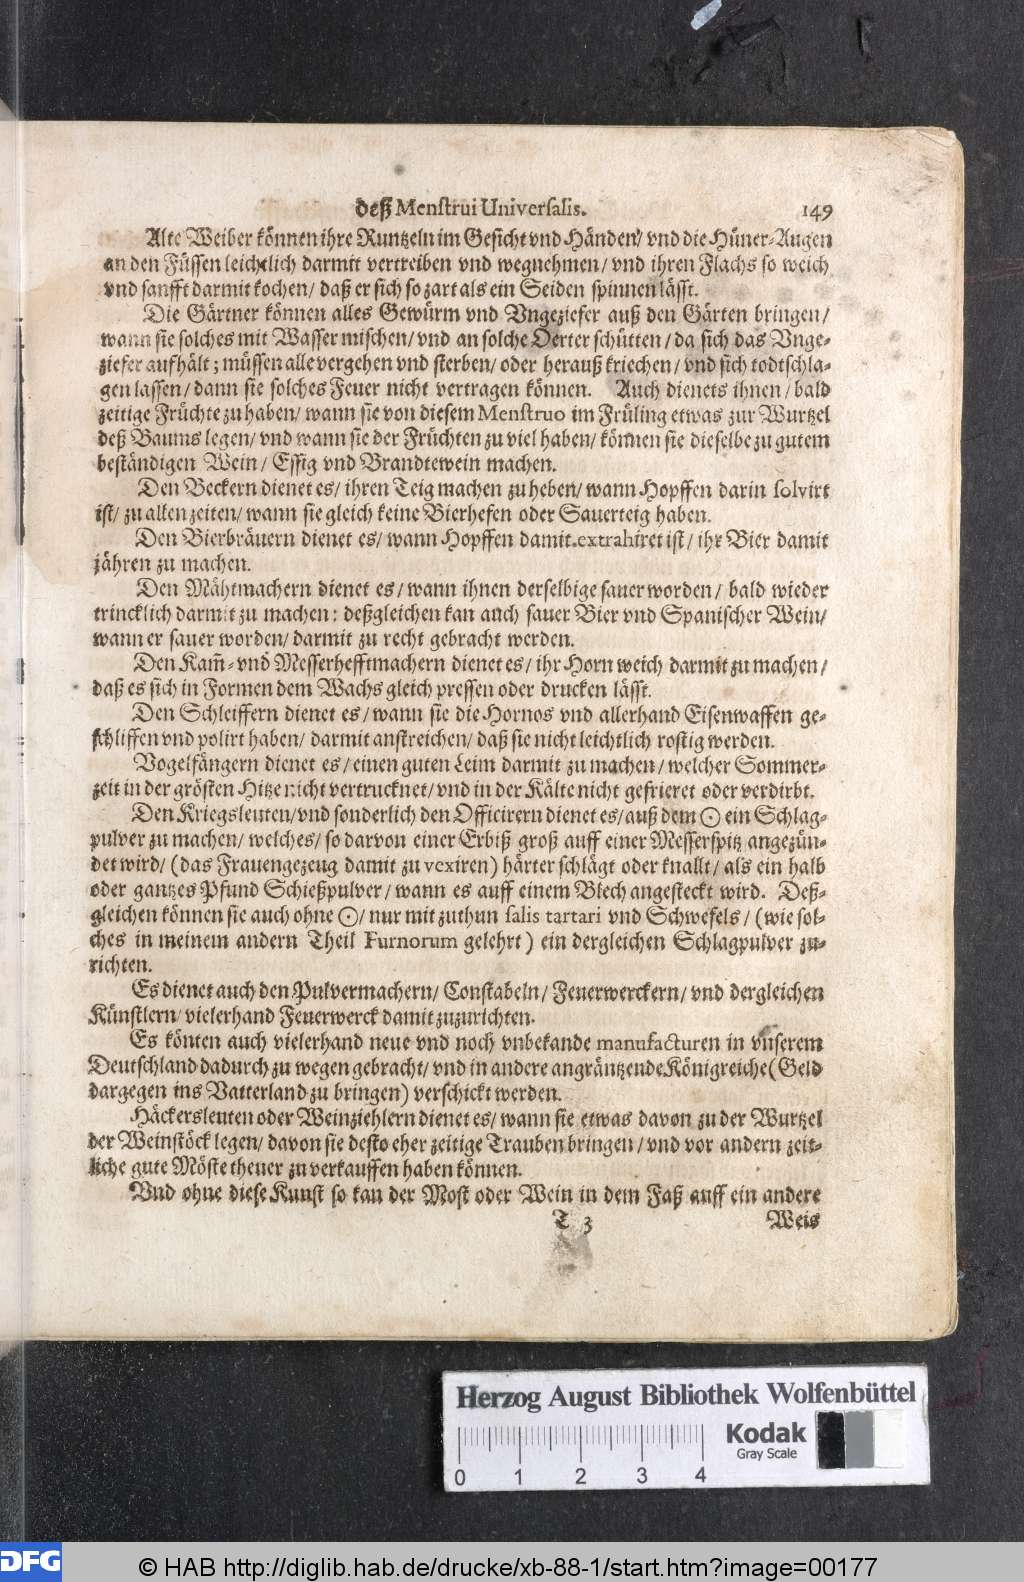 deß Menstrui Universalis. 149
Alte Weiber können ihre Runtzeln im Gesicht vnd Händen/ vnd die Hüner-Augen
an den Füssen leichtlich darmit vertreiben vnd wegnehmen/ vnd ihren Flachs so weich
vnd sanfft darmit kochen/ daß er sich so zart als ein Seiden spinnen lässt.
Die Gärtner können alles Gewürm vnd Vngeziefer auß den Gärten bringen/
wann sie solches mit Wasser mischen/ vnd an solche Oerter schütten/ da sich das Vnge-
ziefer aufhält; müssen alle vergehen vnd sterben/ oder herauß kriechen/ vnd sich todtschla-
gen lassen/ dann sie solches Feuer nicht vertragen können. Auch dienets ihnen/ bald
zeitige Früchte zu haben/ wann sie von diesem Menstruo im Früling etwas zur Wurtzel
deß Baums legen/ vnd wann sie der Früchten zu viel haben/ können sie dieselbe zu gutem
beständigen Wein/ Essig vnd Brandtewein machen.
Den Beckern dienet es/ ihren Teig machen zu heben/ wann Hopffen darin solvirt
ist/ zu allen zeiten/ wann sie gleich keine Bierhefen oder Sauerteig haben.
Den Bierbräuern dienet es/ wann Hopffen damit extrahiret ist/ ihr Bier damit
jähren zu machen.
Den Mähtmachern dienet es/ wann ihnen derselbige sauer worden/ bald wieder
trincklich darmit zu machen: deßgleichen kan auch sauer Bier vnd Spanischer Wein/
wann er sauer worden/ darmit zu recht gebracht werden.
Den Kam̃- vnd Messerhefftmachern dienet es/ ihr Horn weich darmit zu machen/
daß es sich in Formen dem Wachs gleich pressen oder drucken lässt.
Den Schleiffern dienet es/ wann sie die Hornos vnd allerhand Eisenwaffen ge-
schliffen vnd polirt haben/ darmit anstreichen/ daß sie nicht leichtlich rostig werden.
Vogelfängern dienet es/ einen guten Leim darmit zu machen/ welcher Sommer-
zeit in der grösten Hitze nicht vertrucknet/ vnd in der Kälte nicht gefrieret oder verdirbt.
Den Kriegsleuten/ vnd sonderlich den Officirern dienet es/ auß dem ☉ ein Schlag-
pulver zu machen/ welches/ so darvon einer Erbiß groß auff einer Messerspitz angezün-
det wird/ (das Frauengezeug damit zu vexiren) härter schlägt oder knallt/ als ein halb
oder gantzes Pfund Schießpulver/ wann es auff einem Blech angesteckt wird. Deß-
gleichen können sie auch ohne ☉/ nur mit zuthun salis tartari vnd Schwefels/ (wie sol-
ches in meinem andern Theil Furnorum gelehrt) ein dergleichen Schlagpulver zu-
richten.
Es dienet auch den Pulvermachern/ Constabeln/ Feuerwerckern/ vnd dergleichen
Künstlern/ vielerhand Feuerwerck damit zuzurichten.
Es könten auch vielerhand neue vnd noch vnbekande manufacturen in vnserem
Deutschland dadurch zu wegen gebracht/ vnd in andere angräntzende Königreiche (Geld
dargegen ins Vatterland zu bringen) verschickt werden.
Häckersleuten oder Weinziehlern dienet es/ wann sie etwas davon zu der Wurtzel
der Weinstöck legen/ davon sie desto eher zeitige Trauben bringen/ vnd vor andern zeit-
liche gute Möste theuer zu verkauffen haben können.
Vnd ohne diese Kunst so kan der Most oder Wein in dem Faß auff ein andere
T 3 Weis
Herzog August Bibliothek Wolfenbüttel
Kodak
Gray Scale
0 1 2 3 4
DFG © HAB http://diglib.hab.de/drucke/xb-88-1/start.htm?image=00177